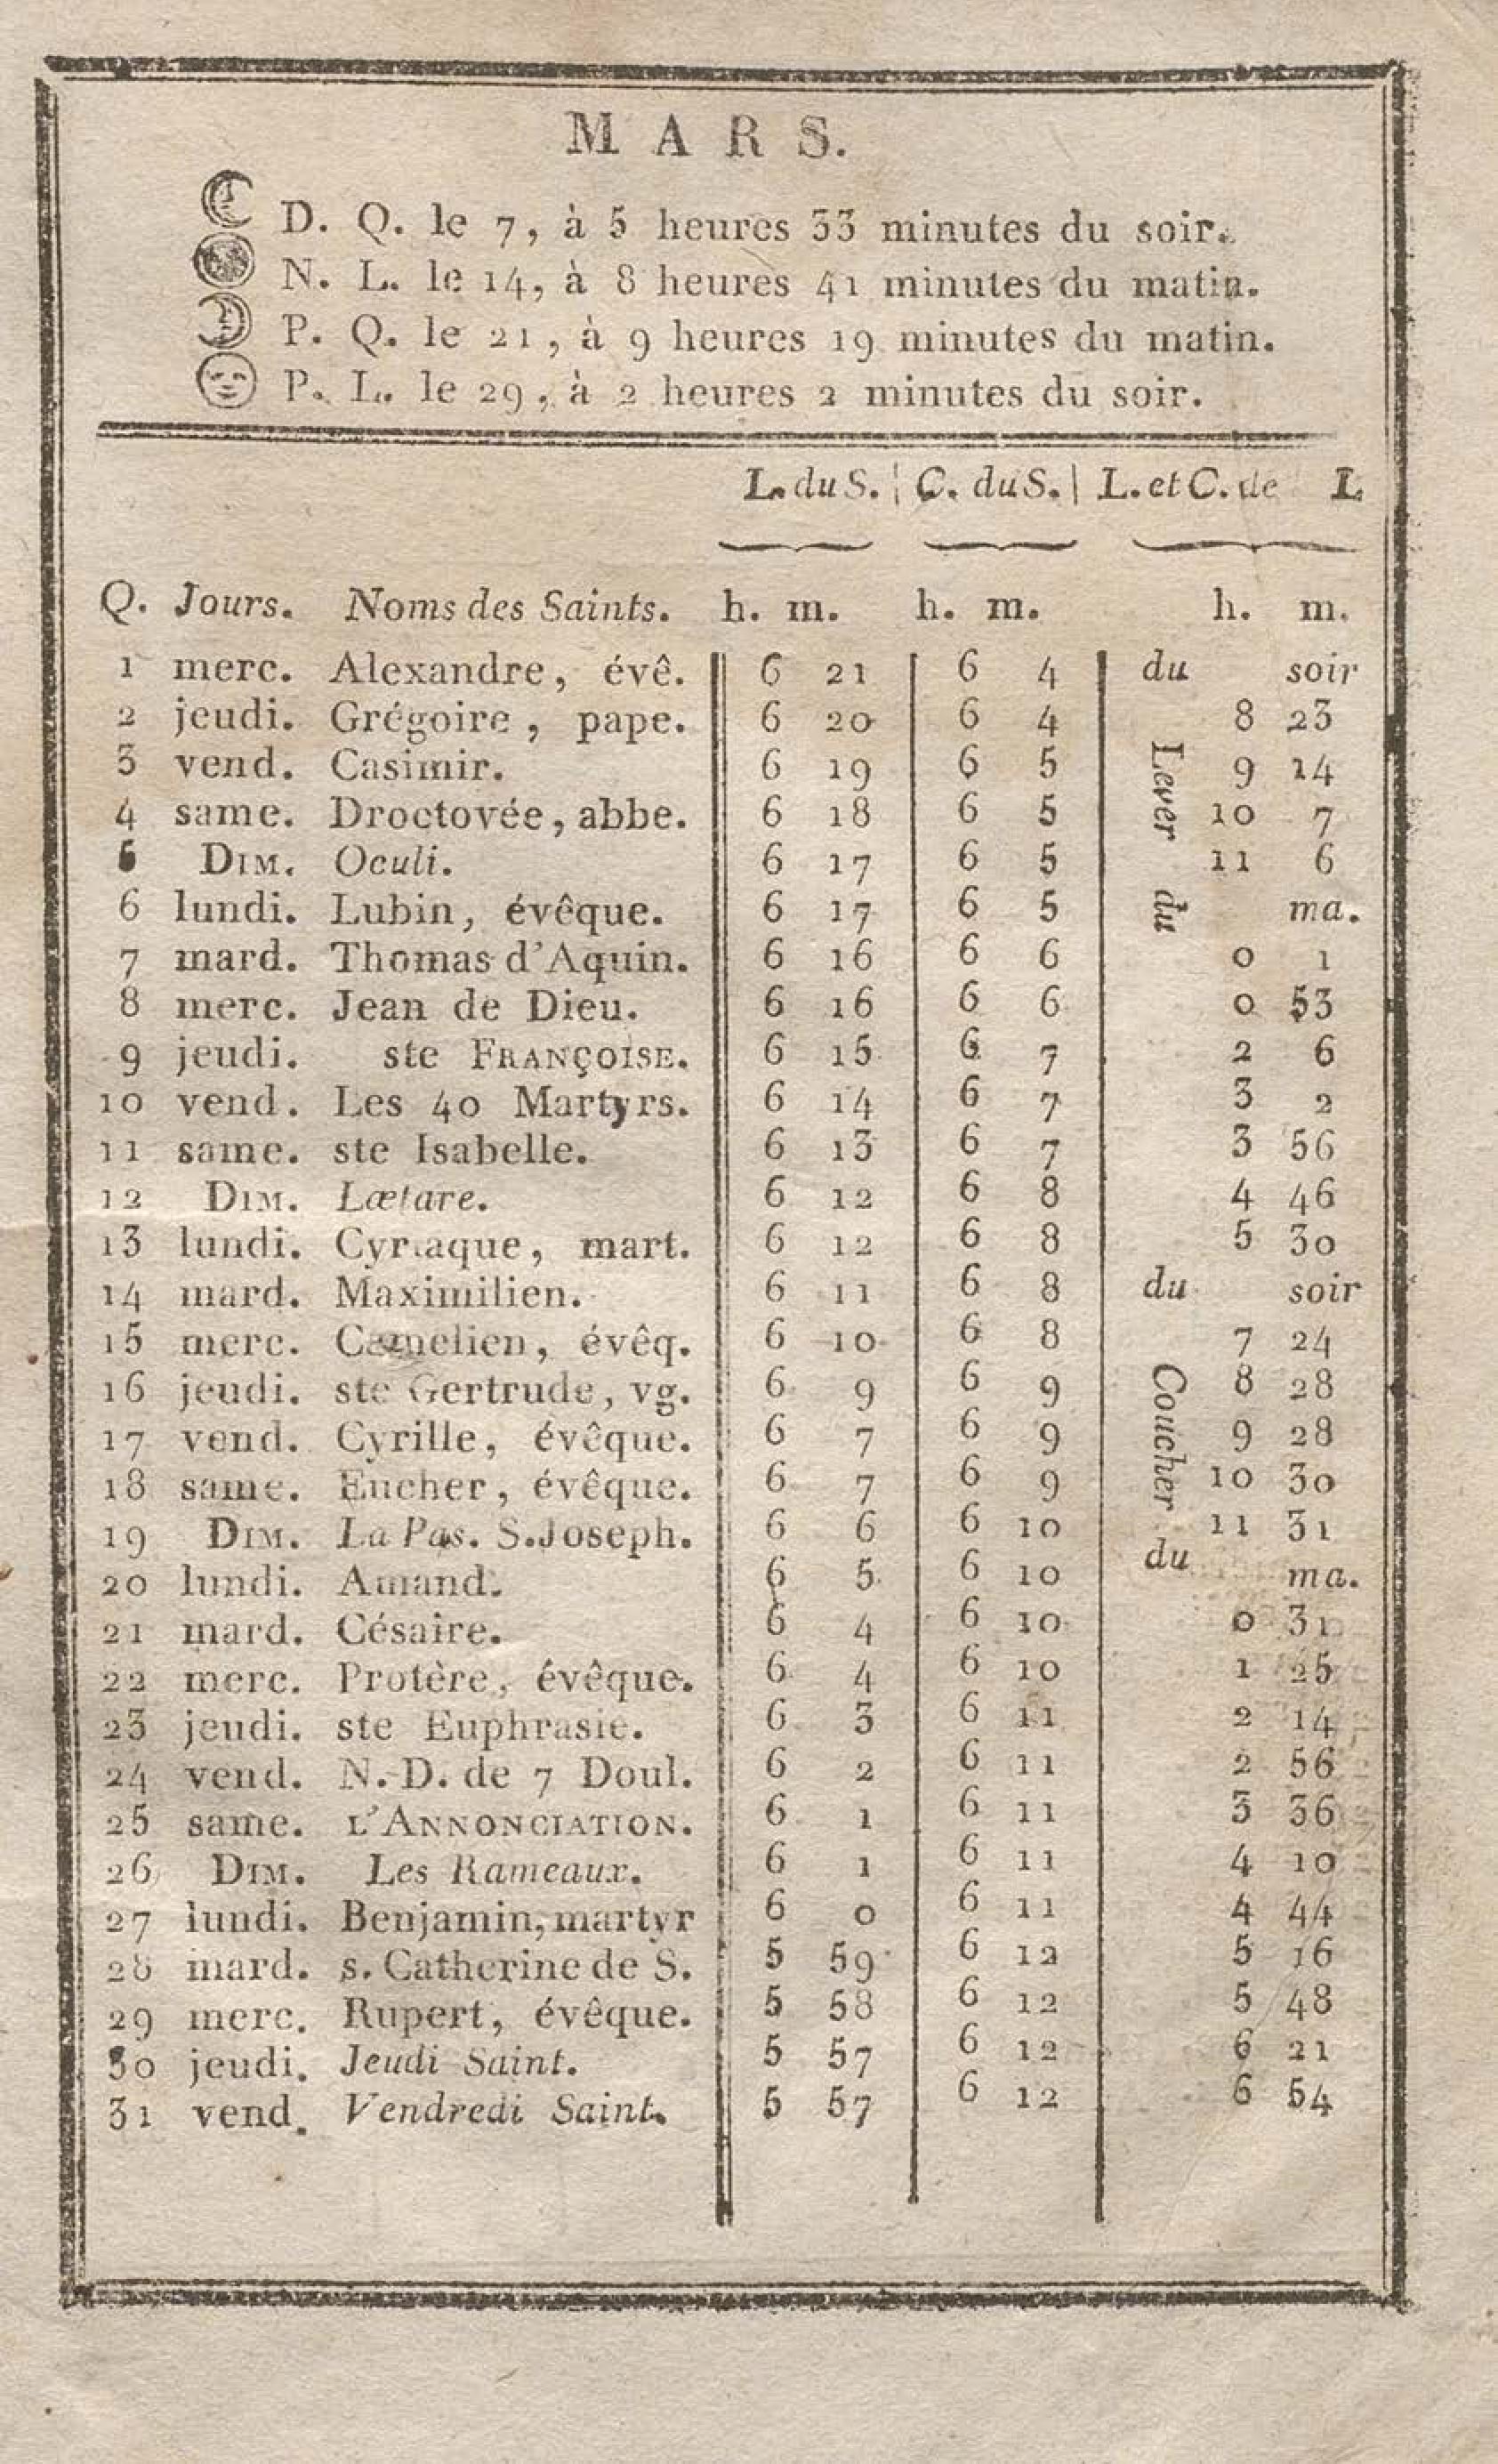 MARS.
D. Q. le 7, à 5 heures 33 minutes du soir.
N. L. le 14, à 8 heures 41 minutes du matin.
P. Q. le 21, à 9 heures 19 minutes du matin.
P. L. le 29, à 2 heures 2 minutes du soir.
L. du S. | C. du S. | L. et C. de L
Q. Jours. Noms des Saints. h. m. h. m. h. m.
1 merc. Alexandre, évê. 6 21 6 4 du soir
2 jeudi. Grégoire, pape. 6 20 6 4 8 23
3 vend. Casimir. 6 19 6 5 Lever 9 14
4 same. Droctovée, abbe. 6 18 6 5 10 7
5 DIM. Oculi. 6 17 6 5 11 6
6 lundi. Lubin, évêque. 6 17 6 5 du ma.
7 mard. Thomas d'Aquin. 6 16 6 6 0 1
8 merc. Jean de Dieu. 6 16 6 6 0 53
9 jeudi. ste FRANÇOISE. 6 15 6 7 2 6
10 vend. Les 40 Martyrs. 6 14 6 7 3 2
11 same. ste Isabelle. 6 13 6 7 3 56
12 DIM. Lætare. 6 12 6 8 4 46
13 lundi. Cyriaque, mart. 6 12 6 8 5 30
14 mard. Maximilien. 6 11 6 8 du soir
15 merc. évêq. 6 10 6 8 7 24
16 jeudi. ste Gertrude, vg. 6 9 6 9 Coucher 8 28
17 vend. Cyrille, évêque. 6 7 6 9 9 28
18 same. Eucher, évêque. 6 7 6 9 10 30
19 DIM. La Pas. S. Joseph. 6 6 6 10 11 31
20 lundi. Amand. 6 5 6 10 du ma.
21 mard. Césaire. 6 4 6 10 0 31
22 merc. Protère, évêque. 6 4 6 10 1 25
23 jeudi. ste Euphrasie. 6 3 6 11 2 14
24 vend. N.-D. de 7 Doul. 6 2 6 11 2 56
25 same. L'ANNONCIATION. 6 1 6 11 3 36
26 DIM. Les Rameaux. 6 1 6 11 4 10
27 lundi. Benjamin, martyr 6 0 6 11 4 44
28 mard. s. Catherine de S. 5 59 6 12 5 16
29 merc. Rupert, évêque. 5 58 6 12 5 48
30 jeudi. Jeudi Saint. 5 57 6 12 6 21
31 vend. Vendredi Saint. 5 57 6 12 6 54